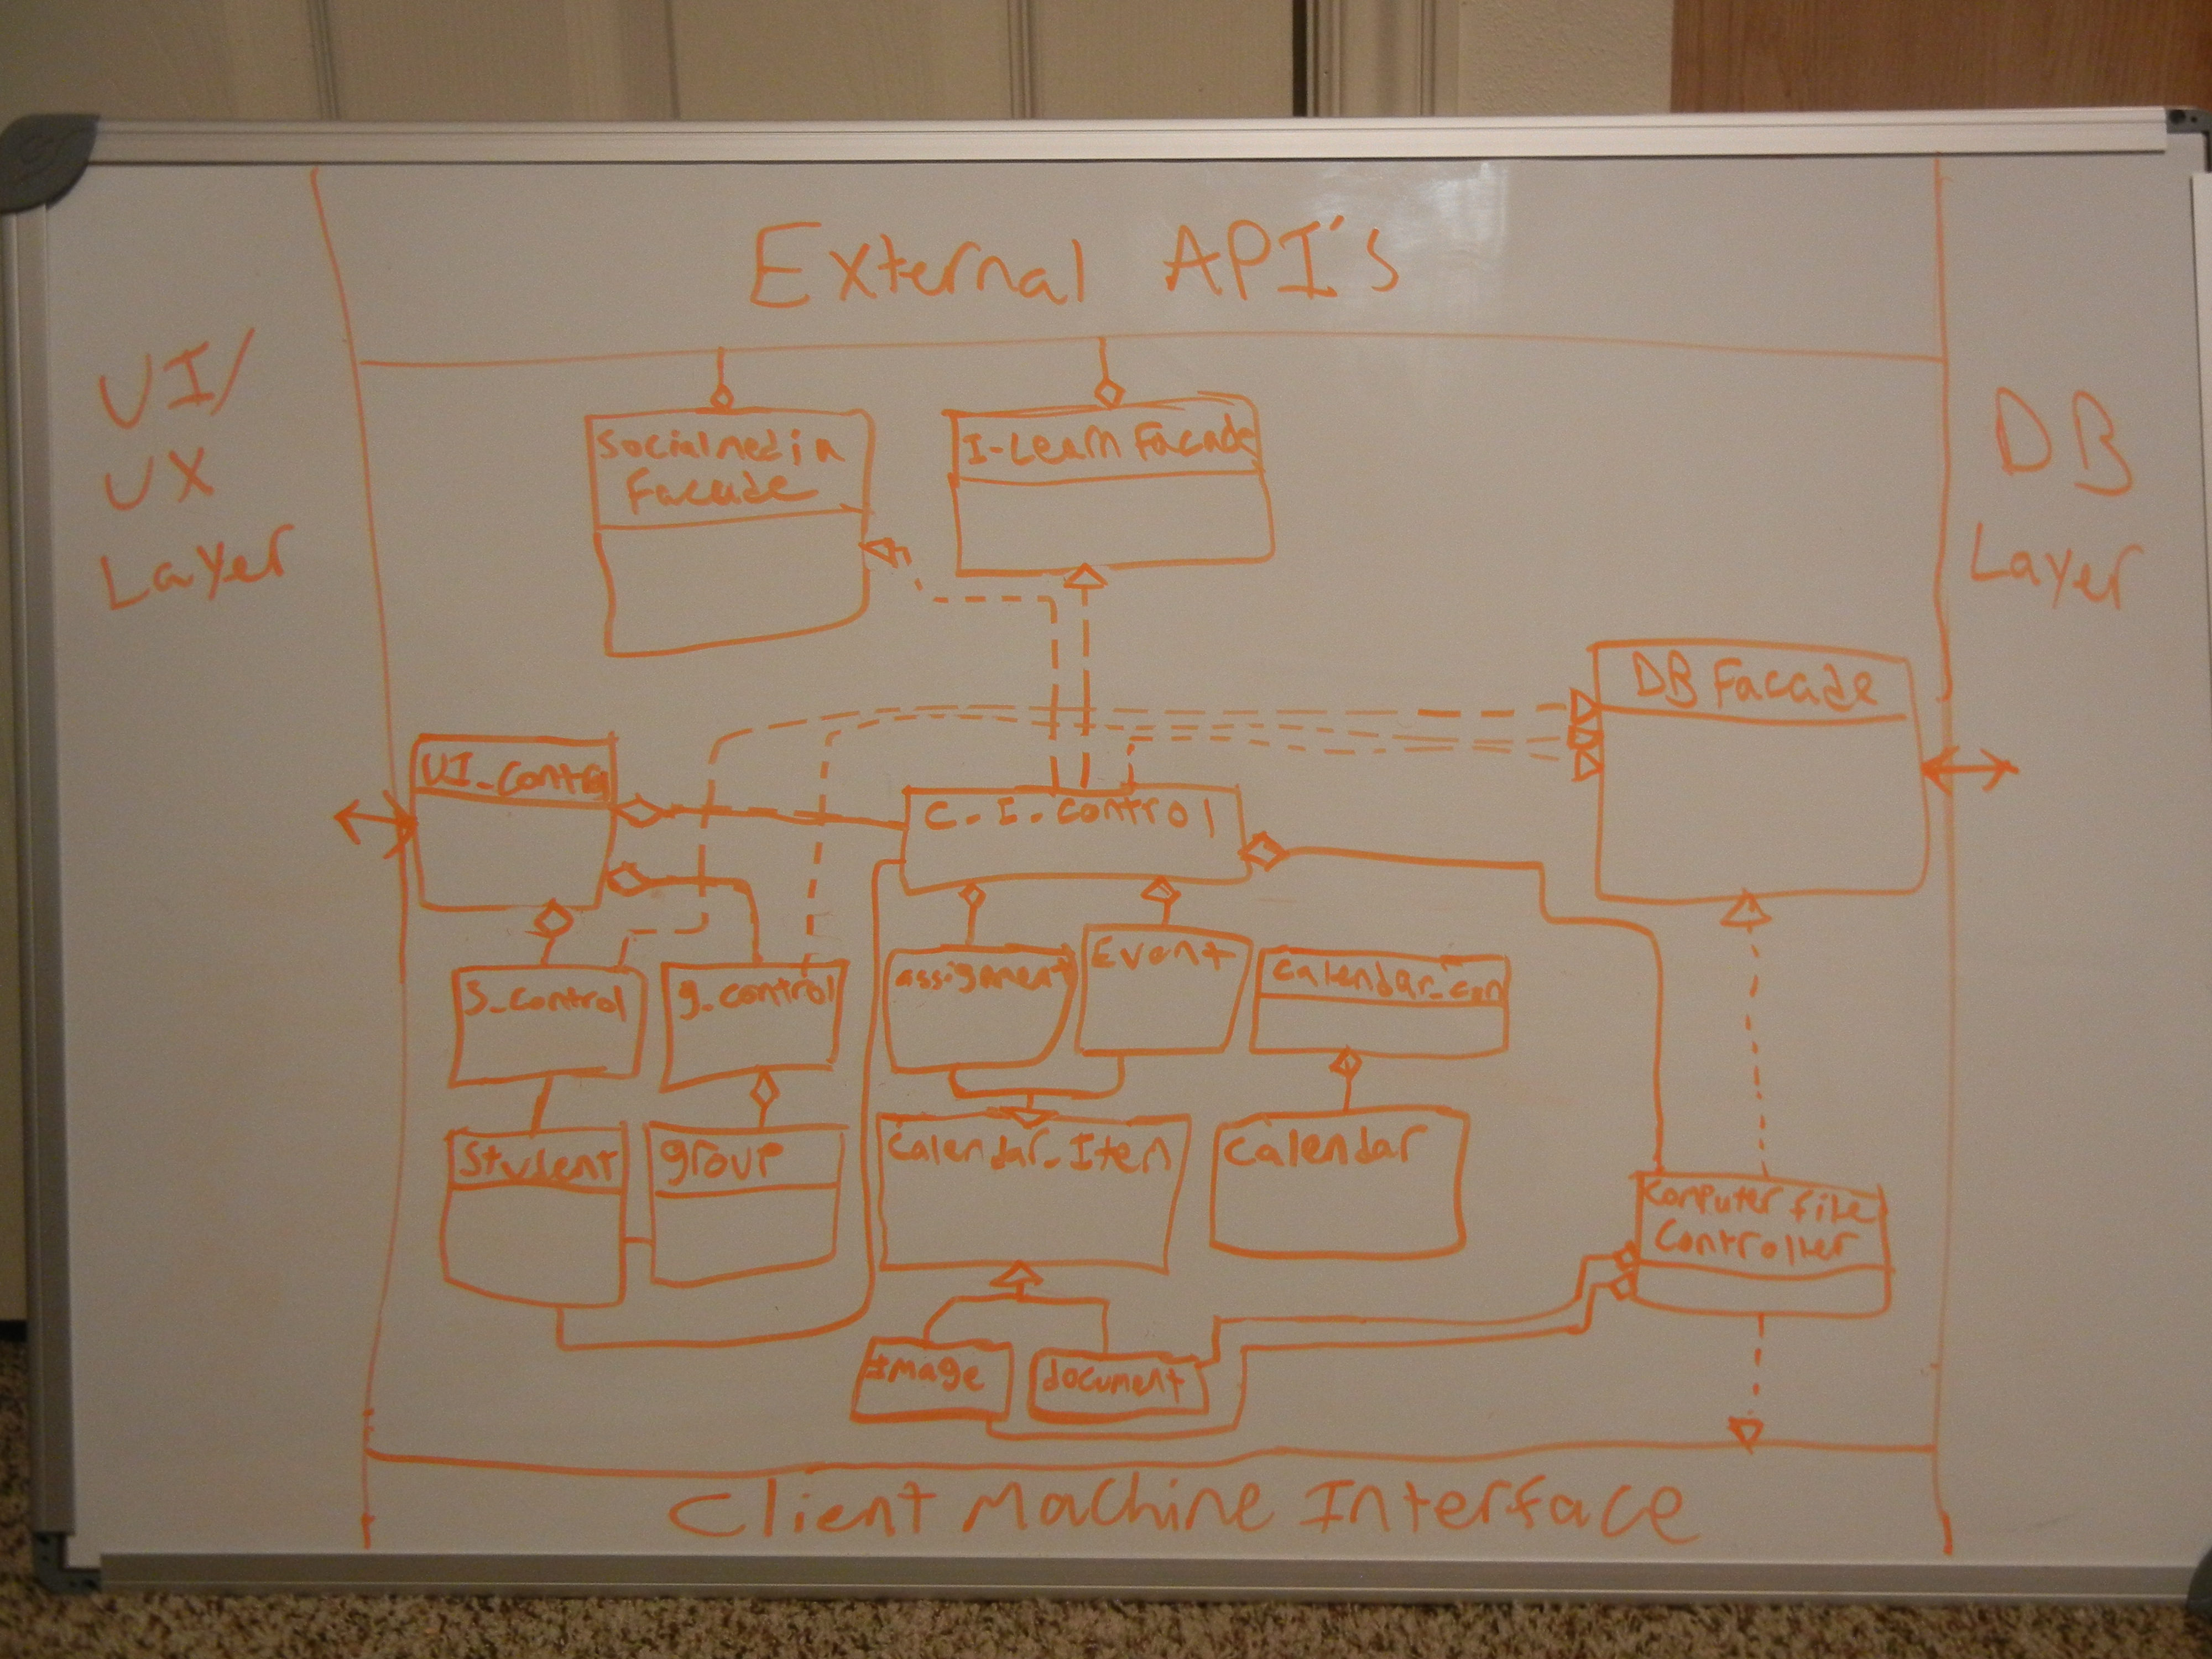 External API's
UI/
UX
Layer
DB
Layer
Socialmedia
Facade
I-Learn Facade
DB Facade
UI_Control
C_I_control
S_control
g_control
assignment
Event
Calendar_con
Student
group
Calendar_Item
Calendar
Computer file
Controller
Image
document
Client Machine Interface